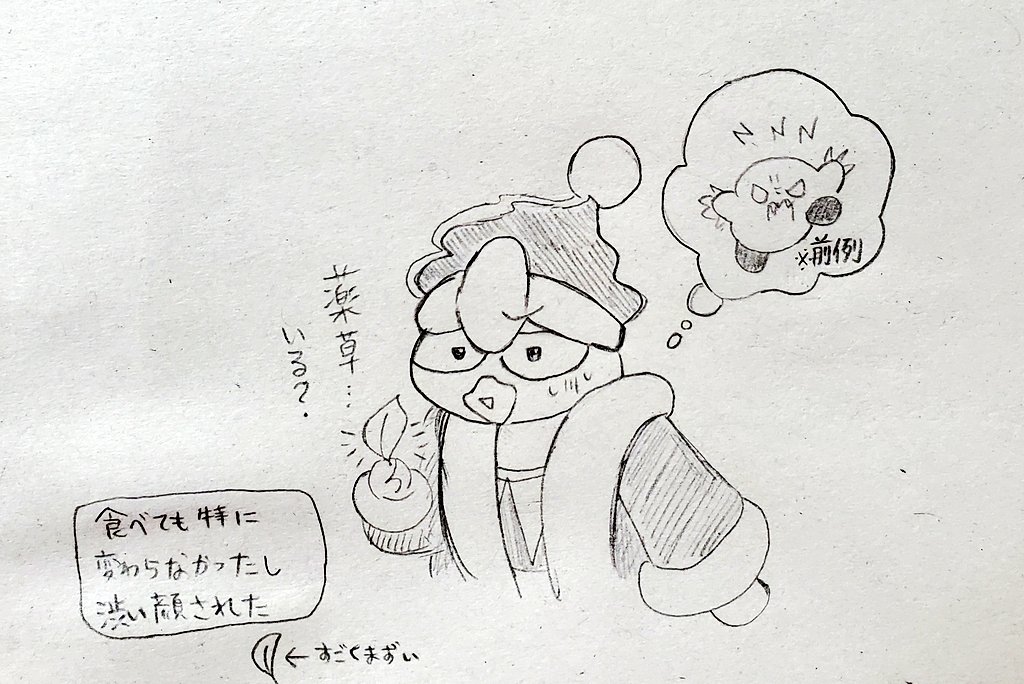 薬草…
いる?
※前例
食べても特に
変わらなかったし
渋い顔された
←すごくまずい